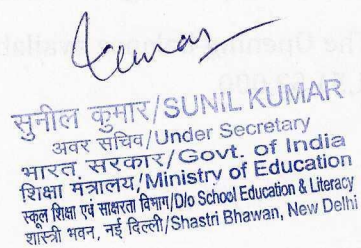 Kumar
The Opening
सुनील कुमार/SUNIL KUMAR
अवर सचिव/Under Secretary
भारत सरकार/Govt. of India
शिक्षा मंत्रालय/Ministry of Education
स्कूल शिक्षा एवं साक्षरता विभाग/D/o School Education & Literacy
शास्त्री भवन, नई दिल्ली/Shastri Bhawan, New Delhi